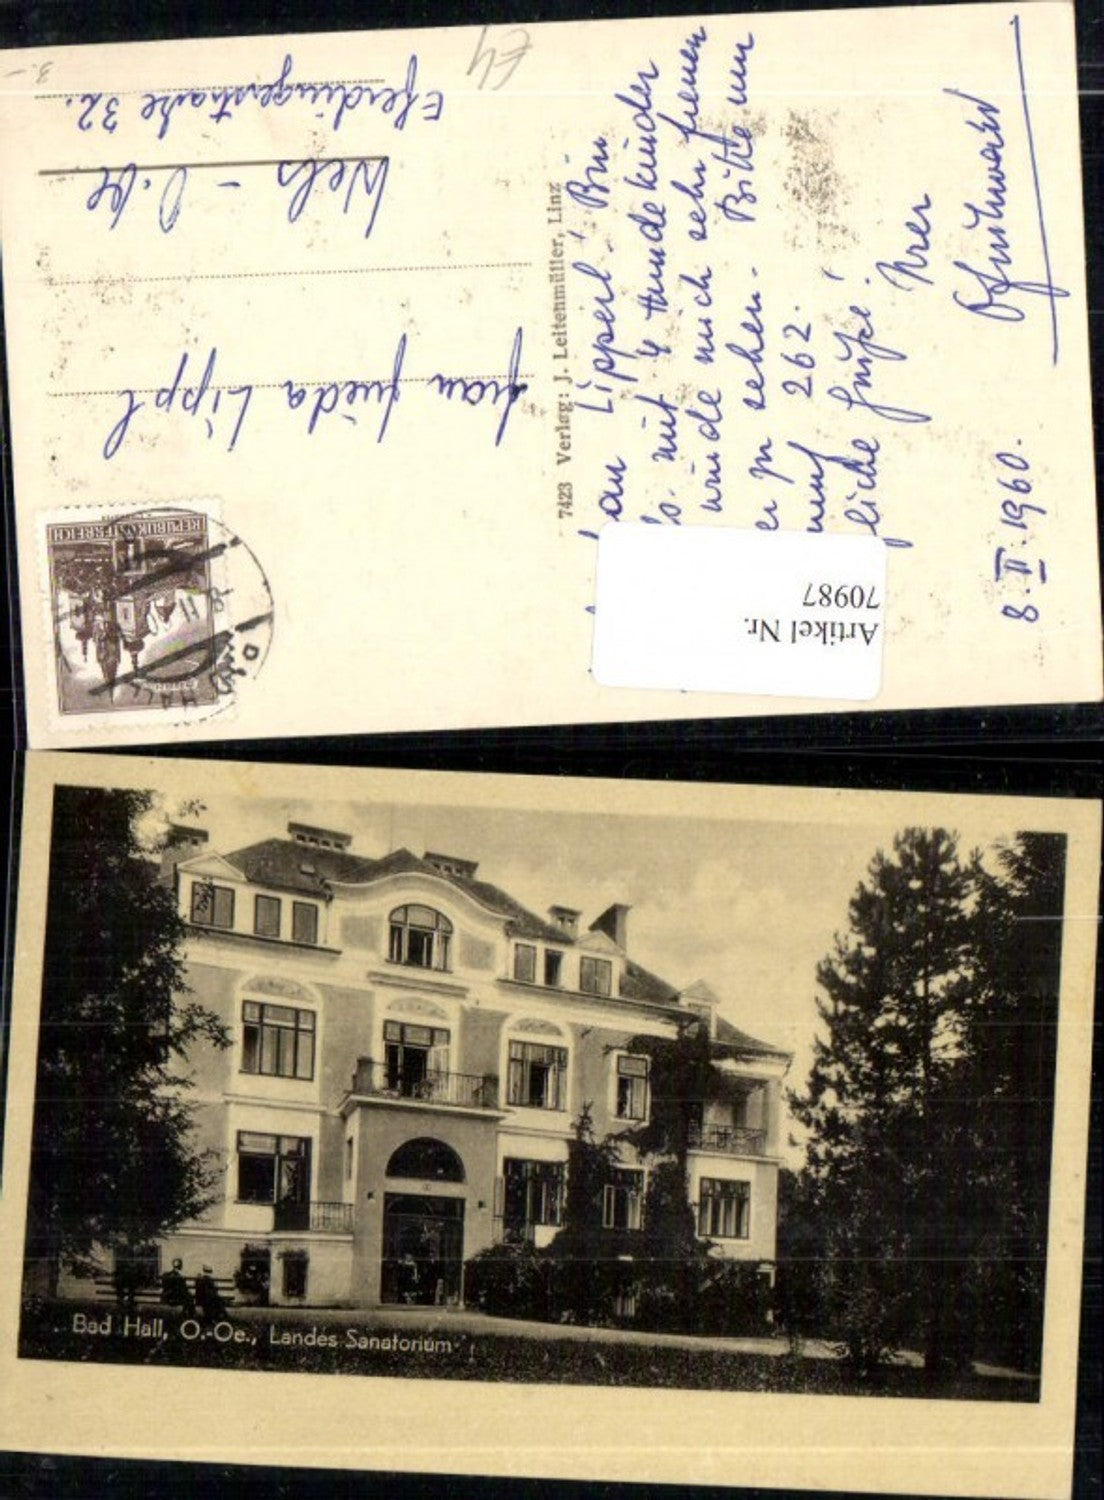 Frau Frieda Lippl
Wels - O.Oe
Eferdingerstraße 32.
3.-
REPUBLIK ÖSTERREICH
7423 Verlag: J. Leitenmüller, Linz
Lipperl! Bin
mit 4 Hundekinder
würde mich sehr freuen
zu sehen. Bitte um
262.
liche Grüße!
Ihrer
8. II. 1960.
Artikel Nr.
70987
Bad Hall, O.-Oe., Landes Sanatorium